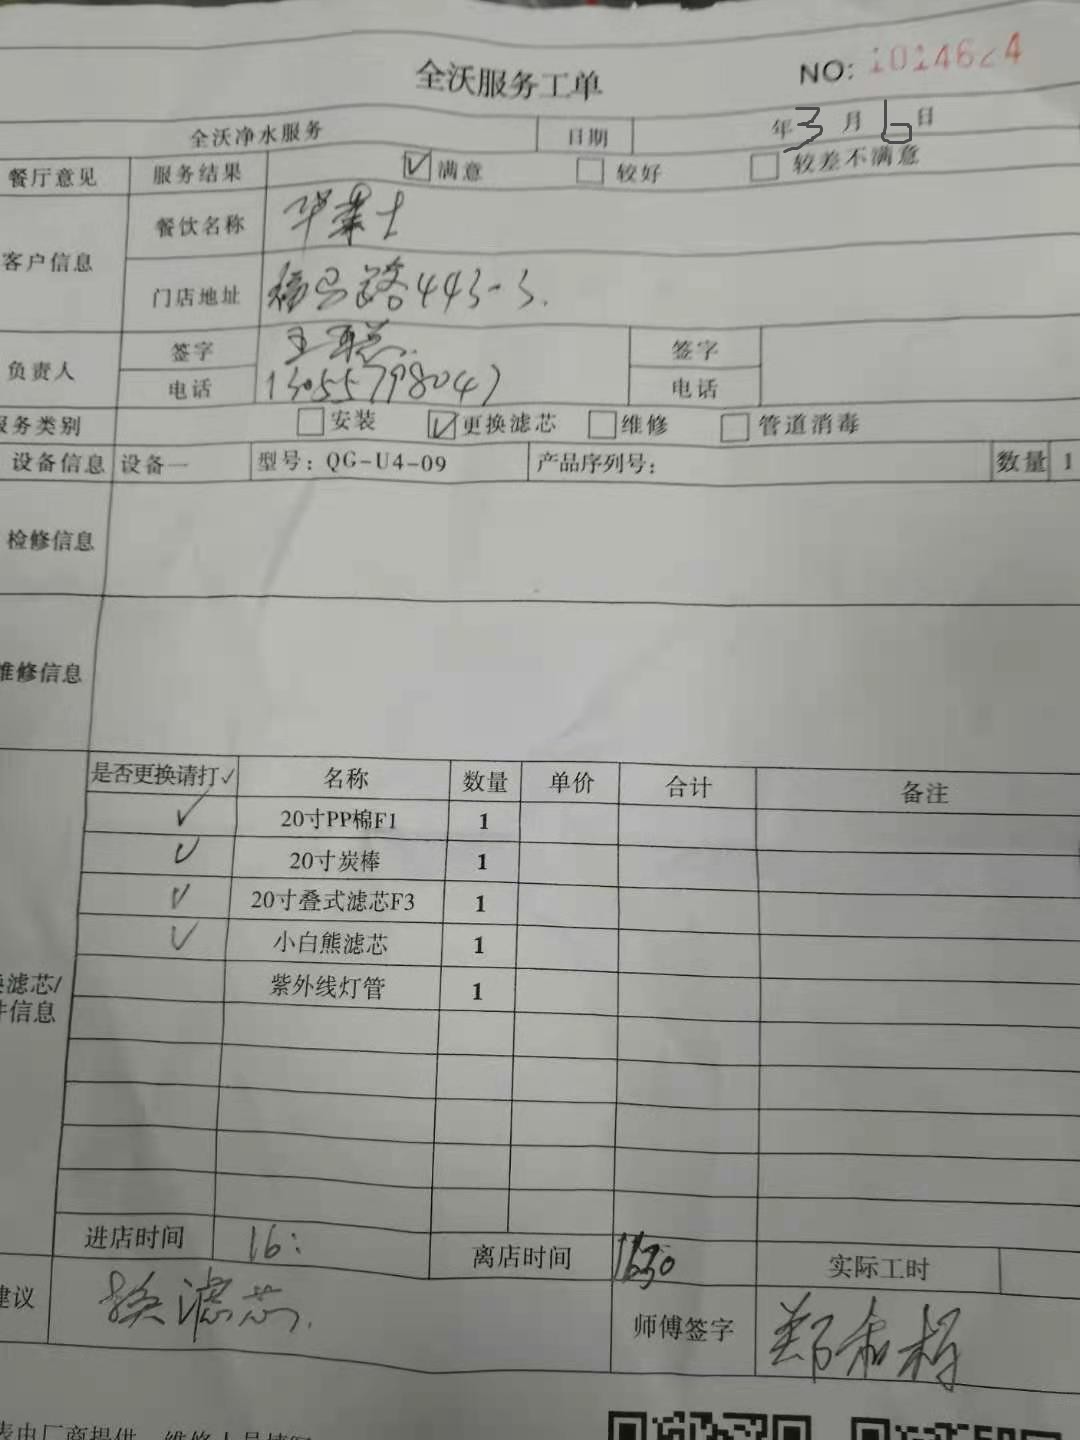 全沃服务工单
NO: 1014624
全沃净水服务 日期 年3月6日
餐厅意见 服务结果 ☑满意 □较好 □较差不满意
客户信息 餐饮名称 华莱士
门店地址 路443-3.
负责人 签字 王 签字
电话 13055798047 电话
服务类别 □安装 ☑更换滤芯 □维修 □管道消毒
设备信息 设备一 型号：QG-U4-09 产品序列号： 数量 1
检修信息
维修信息
是否更换请打✓ 名称 数量 单价 合计 备注
✓ 20寸PP棉F1 1
✓ 20寸炭棒 1
✓ 20寸叠式滤芯F3 1
✓ 小白熊滤芯 1
紫外线灯管 1
滤芯/
信息
进店时间 16: 离店时间 1630 实际工时
建议 换滤芯. 师傅签字 郑
表由厂商提供